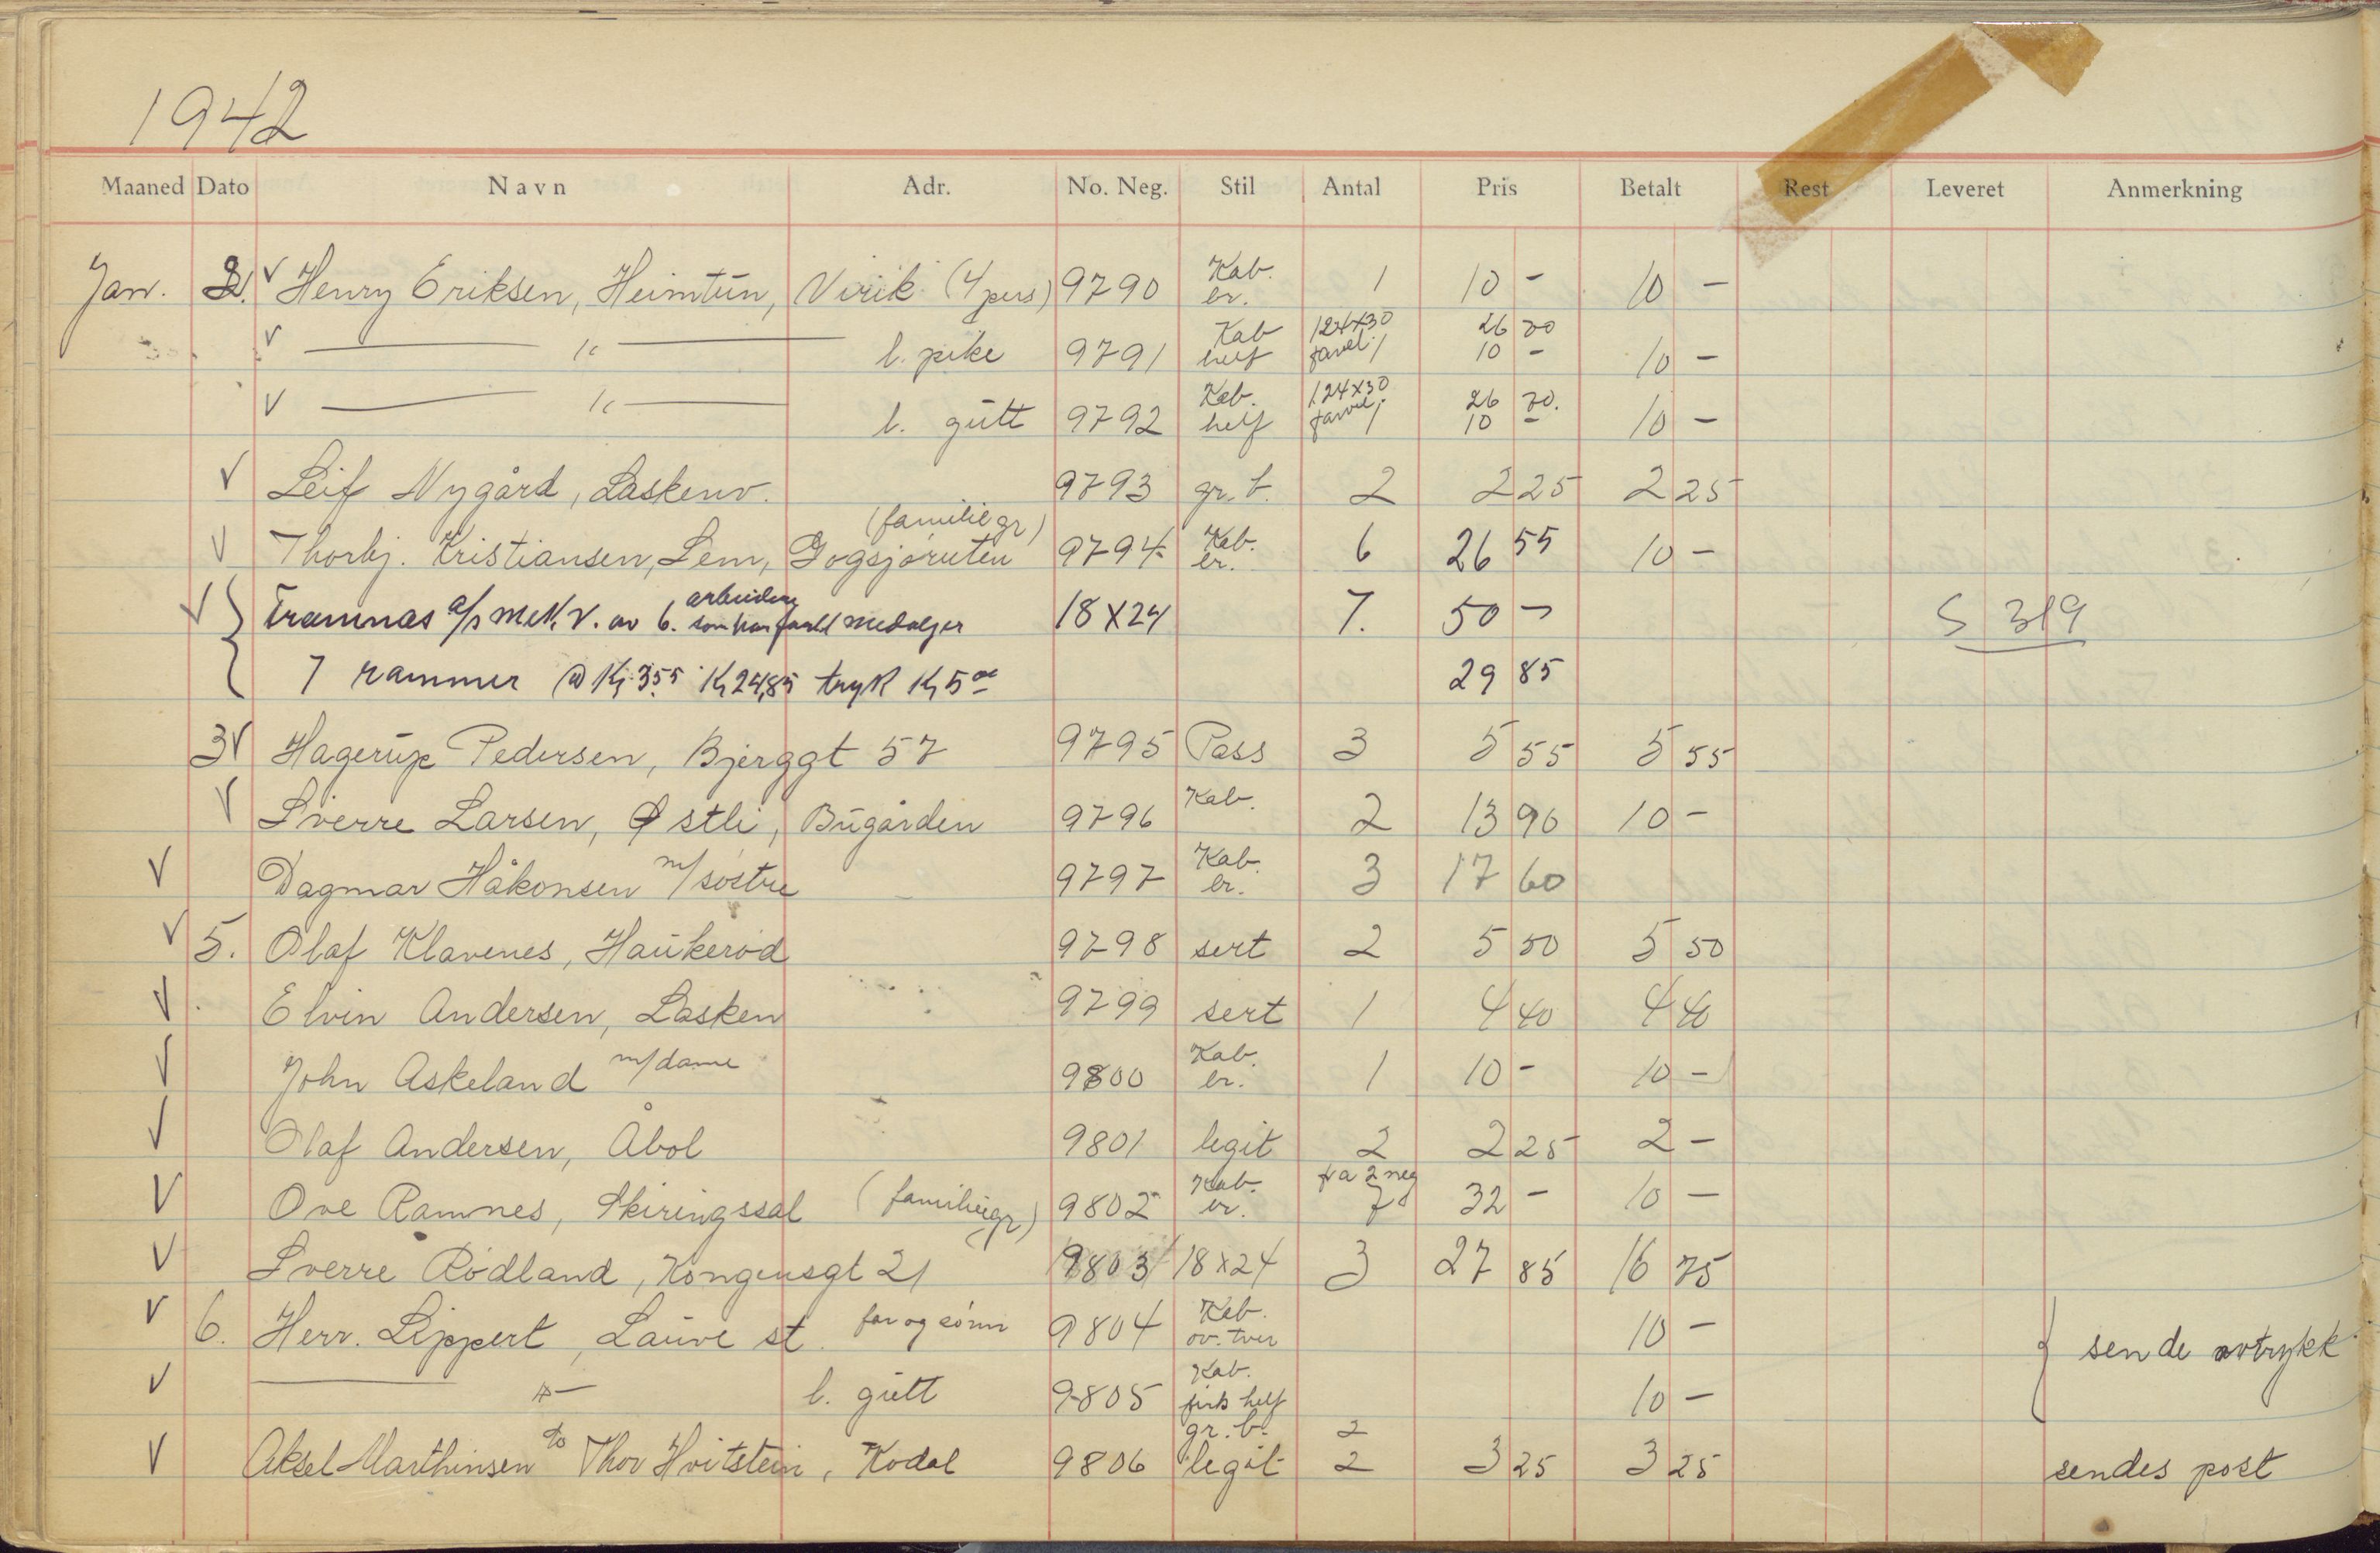 1942
Maaned Dato Navn Adr. No. Neg. Stil Antal Pris Betalt Rest Leveret Anmerkning
Jan. 2. V Henry Eriksen, Heimtun, Virik (4 pers) 9790 Kab. br. 1 10 - 10 -
V — " — l. pike 9791 Kab helf 1 24x30 farvel. 1 26 70 10 - 10 -
V — " — l. gutt 9792 Kab. helf 1 24x30 farvel. 1 26 70. 10 - 10 -
V Leif Nygård, Laskenv. 9793 gr. b. 2 2 25 2 25
V Thorbj. Kristiansen, Lem, Gogsjøruten (familiegr) 9794 Kab. br. 6 26 55 10 -
V Framnæs a/s mek. V. av 6. arbeidere som har faatt medaljer 18x24 7. 50 - S 319
7 rammer @ Kr. 3.55 Kr 24,85 trykk Kr 5 oo 29 85
3 V Hagerup Pedersen, Bjerggt 57 9795 Pass 3 5 55 5 55
V Sverre Larsen, Østli, Bugården 9796 Kab. 2 13 90 10 -
V Dagmar Håkonsen m/søstre 9797 Kab. br. 3 17 60
V 5. Olaf Klavenes, Haukerød 9798 sert 2 5 50 5 50
V Elvin Andersen, Lasken 9799 sert 1 4 40 4 40
V John Askeland m/dame 9800 Kab. br. 1 10 - 10 -
V Olaf Andersen, Åbol 9801 legit 2 2 25 2 -
V Ove Ramnes, Skiringssal (familiegr) 9802 Kab. br. fra 2 neg 7 32 - 10 -
V Sverre Rødland, Kongensgt 21 9803 18x24 3 27 85 16 75
V 6. Herr. Lippert, Lauve st. far og sønn 9804 Kab. ov. tver 10 - sende avtrykk
V — " — l. gutt 9805 Kab. helf 10 -
V Aksel Marthinsen Thor Hvitstein, Kodal 9806 gr. b. 2 legit 2 3 25 3 25 sendes post